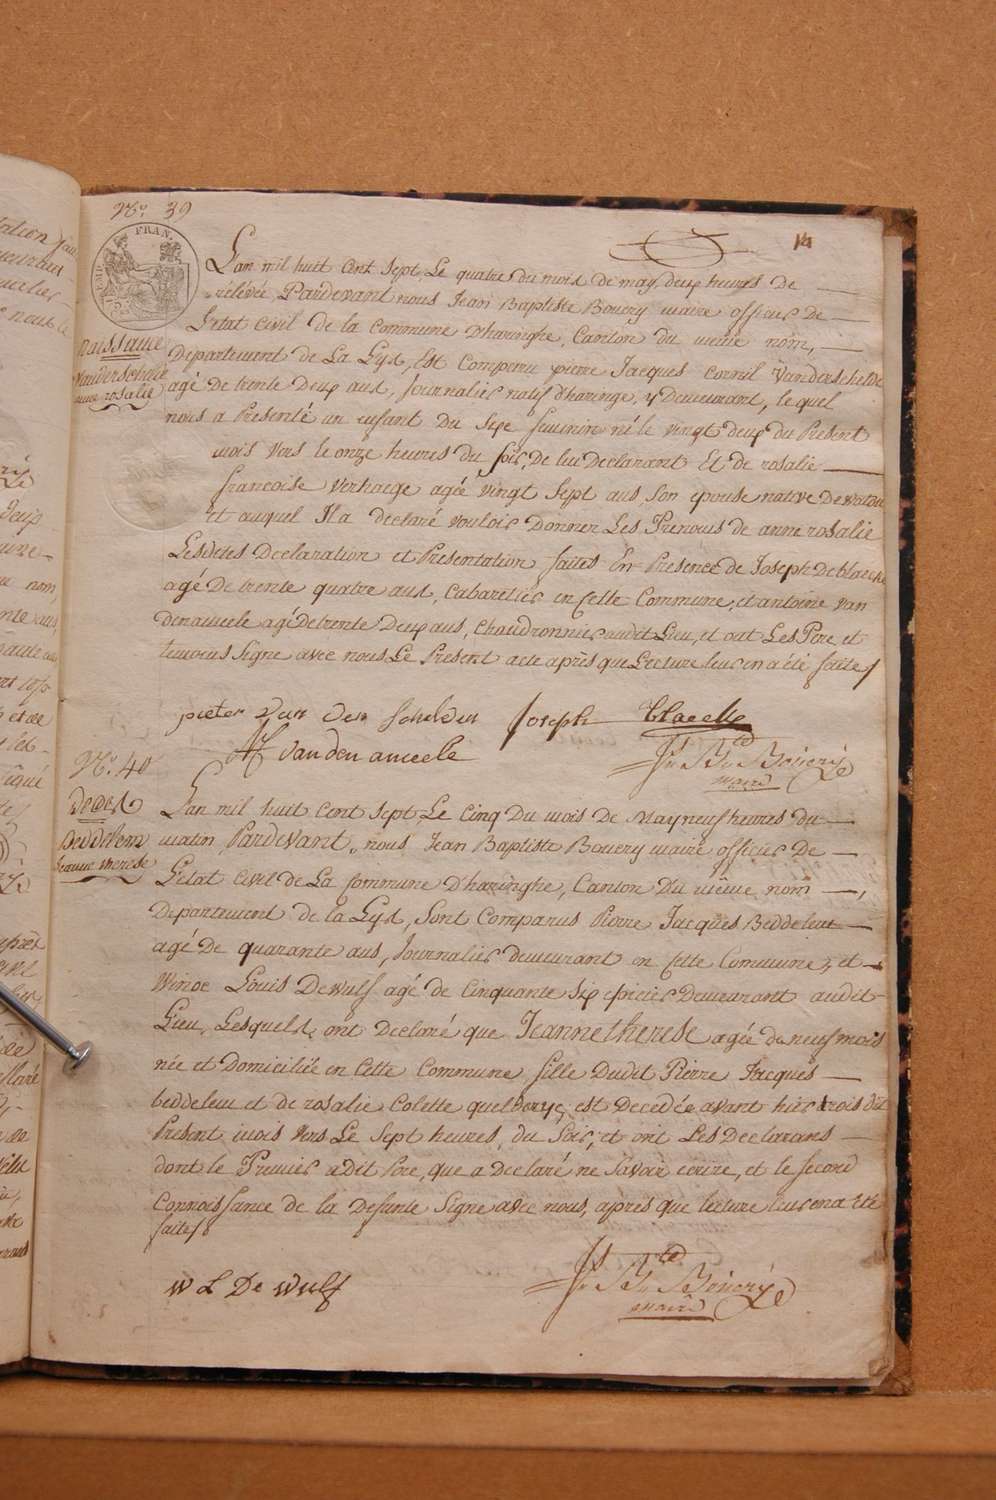 No. 39
14
EMP. FRAN.
Naissance
Vanderschelde
anne rosalie
Lan mil huit cent sept, Le quatre du mois de may, deux heures De
rélévée, Pardevant nous Jean Baptiste Bouery maire officier De
Letat Civil De la Commune D'haringhe, Canton du même nom,
Département de La Lys, Est Comparu pierre Jacques Cornil Vanderschelde
agé De trente Deux ans, Journalier natif d'haringe, y Demeurant, lequel
nous a Présenté un enfant Du Sexe feminin né le vingt deux du Présent
mois vers le onze heures du Soir, De lui Declarant Et de rosalie
francoise verhaege agée vingt Sept ans, Son epouse native De watou
et auquel Il a declaré vouloir Donner Les Prenoms de anne rosalie
Lesdites Declaration et Présentation faites En Presence De Joseph De blaecke
agé De trente quatre ans, Cabaretier en Cette Commune, et antoine van
Denameele agé De trente Deux ans, Chaudronnier audit Lieu, et ont Les Pere et
temoins Signe avec nous Le Présent acte après que Lecture leur en a été faite
pieter Van Den Schelden Joseph
Vandenameele
Jn. Bte. Bouery
maire
No. 40
Deces
Beddeleem
Jeanne therese
Lan mil huit cent sept, Le Cinq Du mois De May neuf heures du
matin, Pardevant, nous Jean Baptiste Bouery maire officier De
Letat Civil De La Commune D'haringhe, Canton Du même nom,
Departement De la Lys, Sont Comparus Pierre Jacques Beddeleem
agé De quarante ans, Journalier demeurant en Cette Commune, et
Winoc Louis Dewulf agé de Cinquante Six epicier Demeurant audit
Lieu, Lesquels, ont Declaré que Jeanne therese agée de neuf mois
née et Domiciliée en Cette Commune fille Dudit Pierre Jacques
beddeleem et de rosalie Colette est Decedée avant hier trois dit
Present mois vers Le Sept heures, du Soir, et ont Les Declarans
dont le Premier adit Pere, que a Declaré ne Savoir ecrire, et le second
Connoissance de la Defunte Signe avec nous, après que lecture leur en a Eté
faites
W L De Wulf
Jn. Bte. Bouery
maire